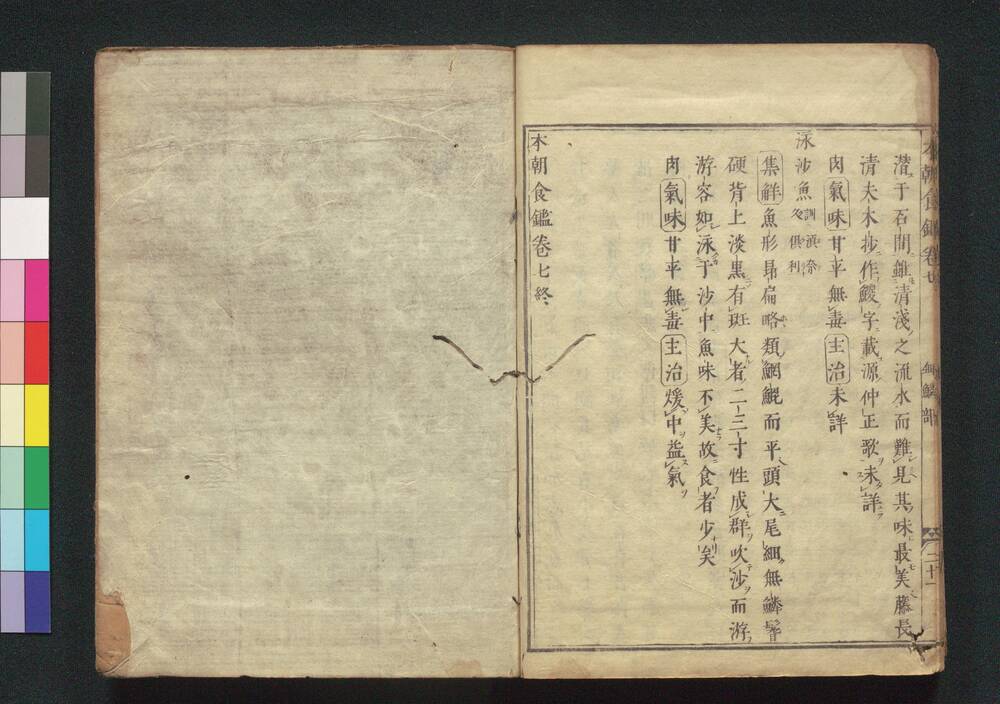 本朝食鑑卷七 無鱗部 二十一
潜于石間雖清淺之流水而難見其味最美藤長
清夫木抄作鯼字載源仲正歌未詳
肉氣味甘平無毒主治未詳
泳沙魚訓濵奈久俱利
集鮮魚形昂扁略類鯛鯤而平頭大尾細無鱗髻
硬背上淡黒有斑大者二三寸性成群吹沙而游
游容如泳于沙中魚味不美故食者少矣
肉氣味甘平無毒主治煖中益氣
本朝食鑑卷七終